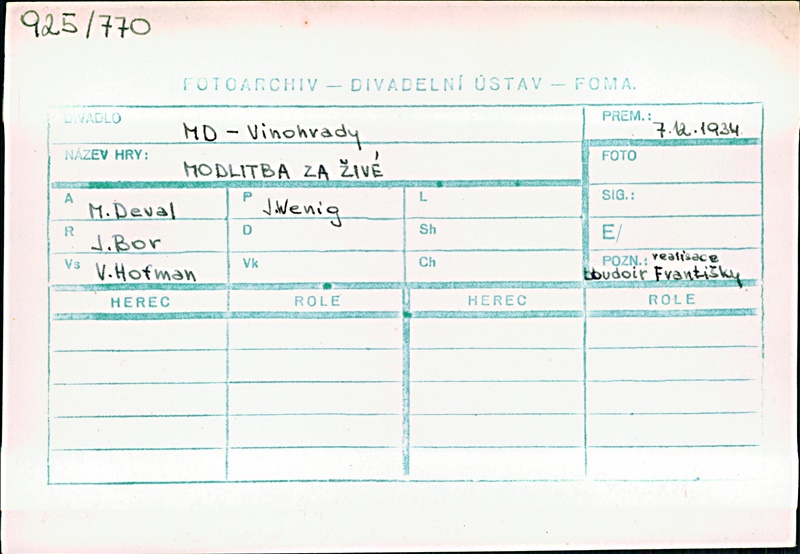 925/770
FOTOARCHIV — DIVADELNÍ ÚSTAV — FOMA.
DIVADLO MD - Vinohrady
PREM.: 7.12.1934
NÁZEV HRY: MODLITBA ZA ŽIVÉ
FOTO
A M. Deval
P J. Wenig
L
SIG.:
R J. Bor
D
Sh
E/
Vs V. Hofman
Vk
Ch
POZN.: realisace
boudoir Františky
HEREC ROLE HEREC ROLE